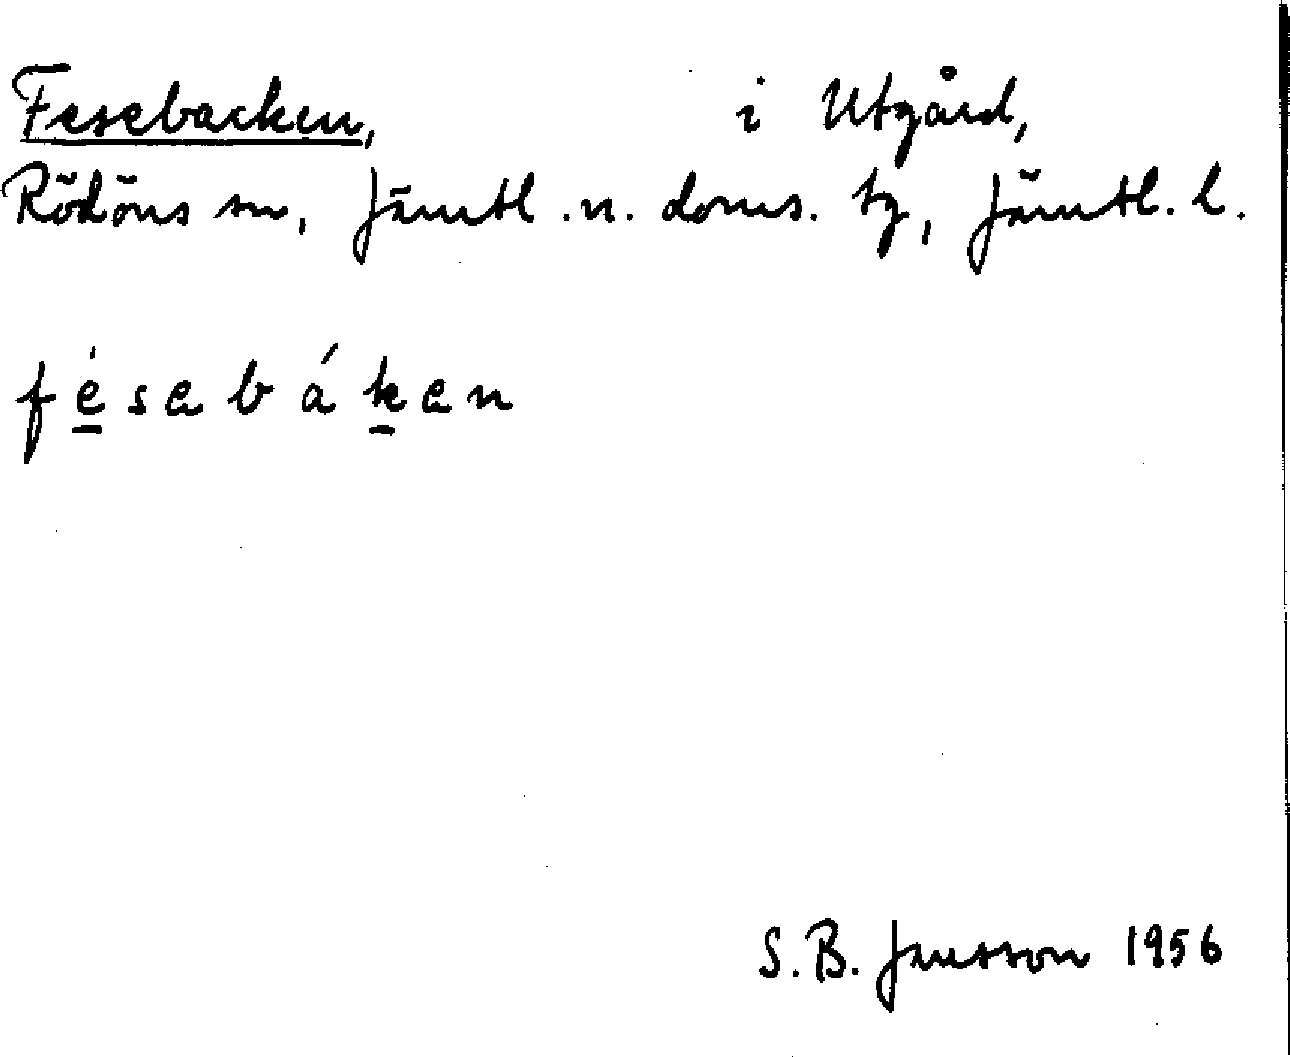 Fesebacken, i Utgård,
Rödöns sn, Jämtl. n. doms. tg, Jämtl. l.
fe̱̍sebáḵen
S. B. Jansson 1956